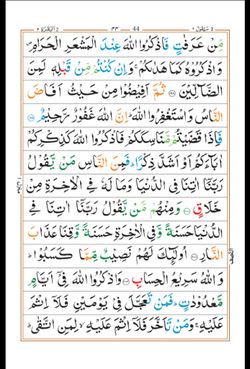 سَيَقُوْلُ ٢ ٣٣ 44 الْبَقَرَة ٢
مِّنْ عَرَفٰتٍ فَاذْكُرُوا اللّٰهَ عِنْدَ الْمَشْعَرِ الْحَرَامِ
وَاذْكُرُوْهُ كَمَا هَدٰىكُمْ ۚ وَاِنْ كُنْتُمْ مِّنْ قَبْلِهٖ لَمِنَ
الضَّآلِّيْنَ ۝ ثُمَّ اَفِيْضُوْا مِنْ حَيْثُ اَفَاضَ
النَّاسُ وَاسْتَغْفِرُوا اللّٰهَ ؕ اِنَّ اللّٰهَ غَفُوْرٌ رَّحِيْمٌ ۝
فَاِذَا قَضَيْتُمْ مَّنَاسِكَكُمْ فَاذْكُرُوا اللّٰهَ كَذِكْرِكُمْ
اٰبَآءَكُمْ اَوْ اَشَدَّ ذِكْرًا ؕ فَمِنَ النَّاسِ مَنْ يَّقُوْلُ
رَبَّنَآ اٰتِنَا فِى الدُّنْيَا وَمَا لَهٗ فِى الْاٰخِرَةِ مِنْ
خَلَاقٍ ۝ وَمِنْهُمْ مَّنْ يَّقُوْلُ رَبَّنَآ اٰتِنَا فِى
الدُّنْيَا حَسَنَةً وَّفِى الْاٰخِرَةِ حَسَنَةً وَّقِنَا عَذَابَ
النَّارِ ۝ اُولٰٓئِكَ لَهُمْ نَصِيْبٌ مِّمَّا كَسَبُوْا ؕ
وَاللّٰهُ سَرِيْعُ الْحِسَابِ ۝ وَاذْكُرُوا اللّٰهَ فِىْٓ اَيَّامٍ
مَّعْدُوْدٰتٍ ؕ فَمَنْ تَعَجَّلَ فِىْ يَوْمَيْنِ فَلَآ اِثْمَ
عَلَيْهِ ۚ وَمَنْ تَاَخَّرَ فَلَآ اِثْمَ عَلَيْهِ ۙ لِمَنِ اتَّقٰى ؕ